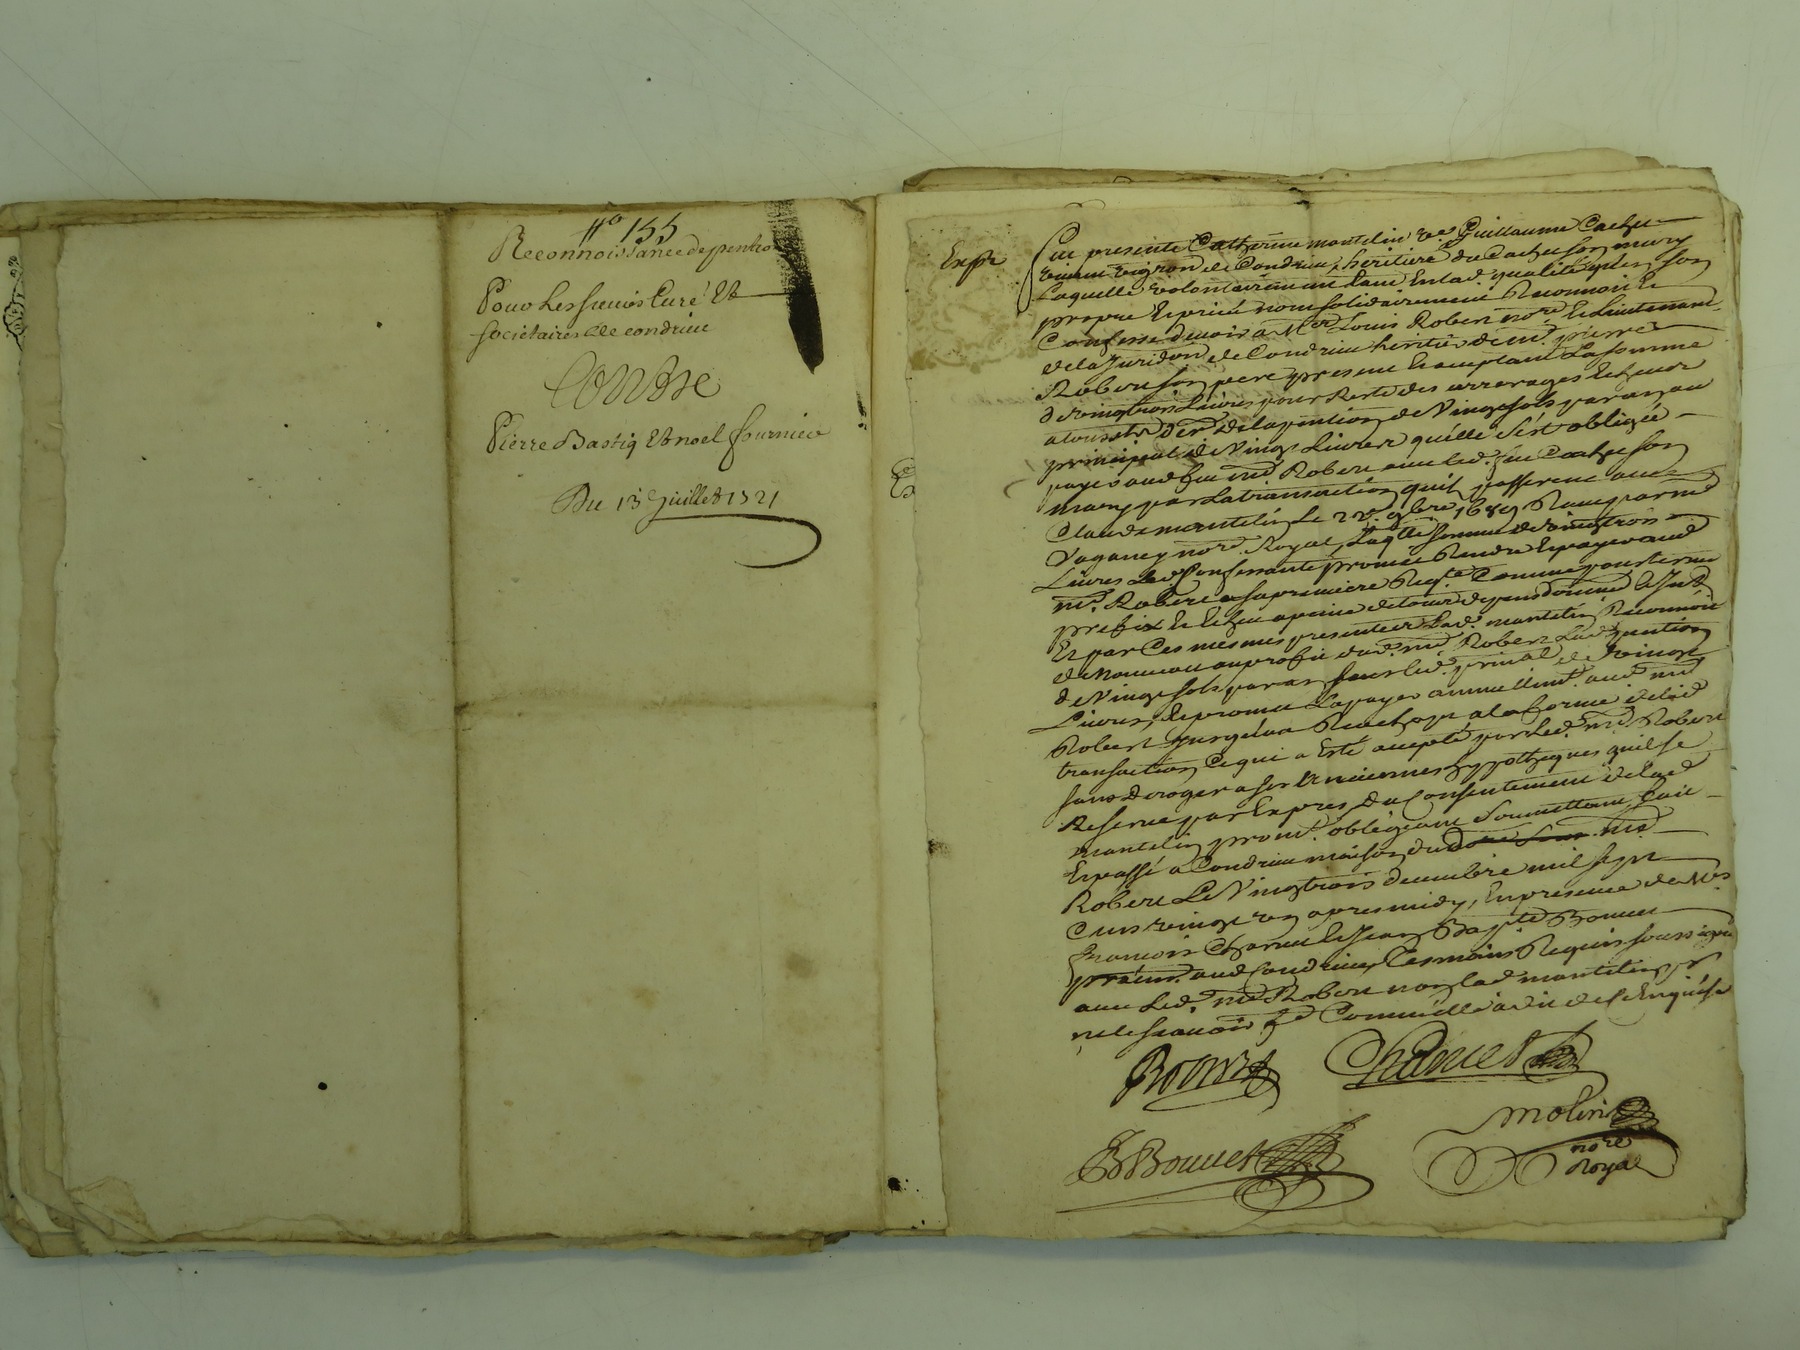 No 155
Reconnoissance de pention
Pour Les sieurs Curé Et
sociétaires de condrieu
Contre
Pierre Bastig Et noel fournier
Du 13 Juillet 1721
Expé
fut presente Catherine mantelin ve Guillaume Cachet
vivant vigneron de Condrieu, heritiere du Cachet son mary
Laquelle volontairement tant En lad. qualité qu'en son
propre Et privé nom solidairement Reconnoit Et
Confesse devoir a Mer Louis Robert nore Et Lieutenant
de la Juridon de Condrieu heritier de me pierre
Robert son pere present Et acceptant La somme
de vingt trois Livres pour Reste des arrerages Echeus
de la pention de Vingt sols par an au
principal de Vingt Livres qu'elle s'est obligée
payer aud feu me Robert avec led. feu Cachet son
mary par La transaction quils passerent avec
Claude mantelin le 9bre 1689 Receue par me
Vaganey nore Royal, Laqlle somme de vingt trois
Livres Lad. Confessante promet Rendre Et payer aud
me. Robert a sa premiere Reqte Comme pour terme
prefix Et Echeu a peine de tous depens
Et par Ces mesmes presentes Lad. mantelin Reconnoit
de Nouveau au profit dud. me Robert Lad. pention
de Vingt sols par an sous led. prinal de Vingt
Livres, Et promet La payer annuellemt. aud me
Robert Jusqu'au Rachapt a la forme de lad
transaction Ce qui a Esté accepté par Led. me. Robert
sans deroger a ses Anciennes hypotheques quil se
Reserve par Exprès du Consentement de lad
mantelin obligeant Soumettant, fait
Et passé a Condrieu maison dud me
Robert Le Vingt trois decembre mil sept
Cens vingt apres midy, En presence de Mes
François Chanuet Et Jean Bapte Bonnet
aud Condrieu, Tesmoins Requis soussignés
avec Led. me Robert non lad mantelin pr
ne le scavoir Comm'elle a dit de ce Enquise
Robert
Chanuet
JB Bonnet
Molin
nore
Royal